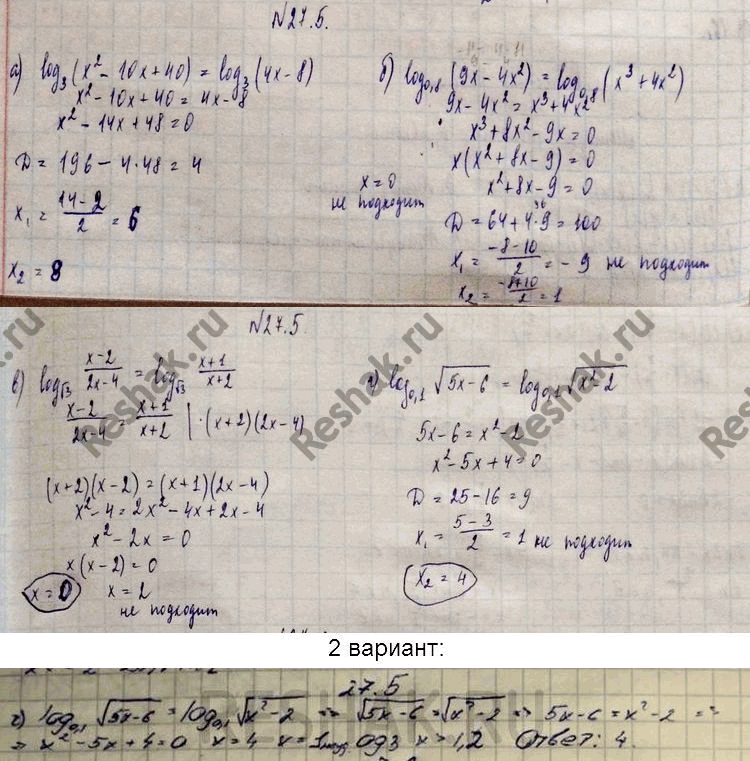 №27.5.
а) log₃(x² - 10x + 40) = log₃(4x - 8)
x² - 10x + 40 = 4x - 8
x² - 14x + 48 = 0
D = 196 - 4·48 = 4
x₁ = (14 - 2)/2 = 6
x₂ = 8
б) log₀,₈(9x - 4x²) = log₀,₈(x³ + 4x²)
9x - 4x² = x³ + 4x²
x³ + 8x² - 9x = 0
x(x² + 8x - 9) = 0
x = 0
не подходит
x² + 8x - 9 = 0
36
D = 64 + 4·9 = 100
x₁ = (-8 - 10)/2 = -9 не подходит
x₂ = (-8 + 10)/2 = 1
№27.5.
в) log√3 (x-2)/(2x-4) = log√3 (x+1)/(x+2)
(x-2)/(2x-4) = (x+1)/(x+2) | ·(x+2)(2x-4)
(x+2)(x-2) = (x+1)(2x-4)
x² - 4 = 2x² - 4x + 2x - 4
x² - 2x = 0
x(x-2) = 0
x = 0 x = 2
не подходит
г) log₀,₁ √(5x-6) = log₀,₁ √(x²-2)
5x - 6 = x² - 2
x² - 5x + 4 = 0
D = 25 - 16 = 9
x₁ = (5-3)/2 = 1 не подходит
x₂ = 4
Reshak.ru
Reshak.ru
Reshak.ru
2 вариант:
27.5
г) log₀,₁ √(5x-6) = log₀,₁ √(x²-2) => √(5x-6) = √(x²-2) => 5x-6 = x²-2 =>
=> x² - 5x + 4 = 0 x = 4 x = 1 ОДЗ x > 1,2 Ответ: 4.